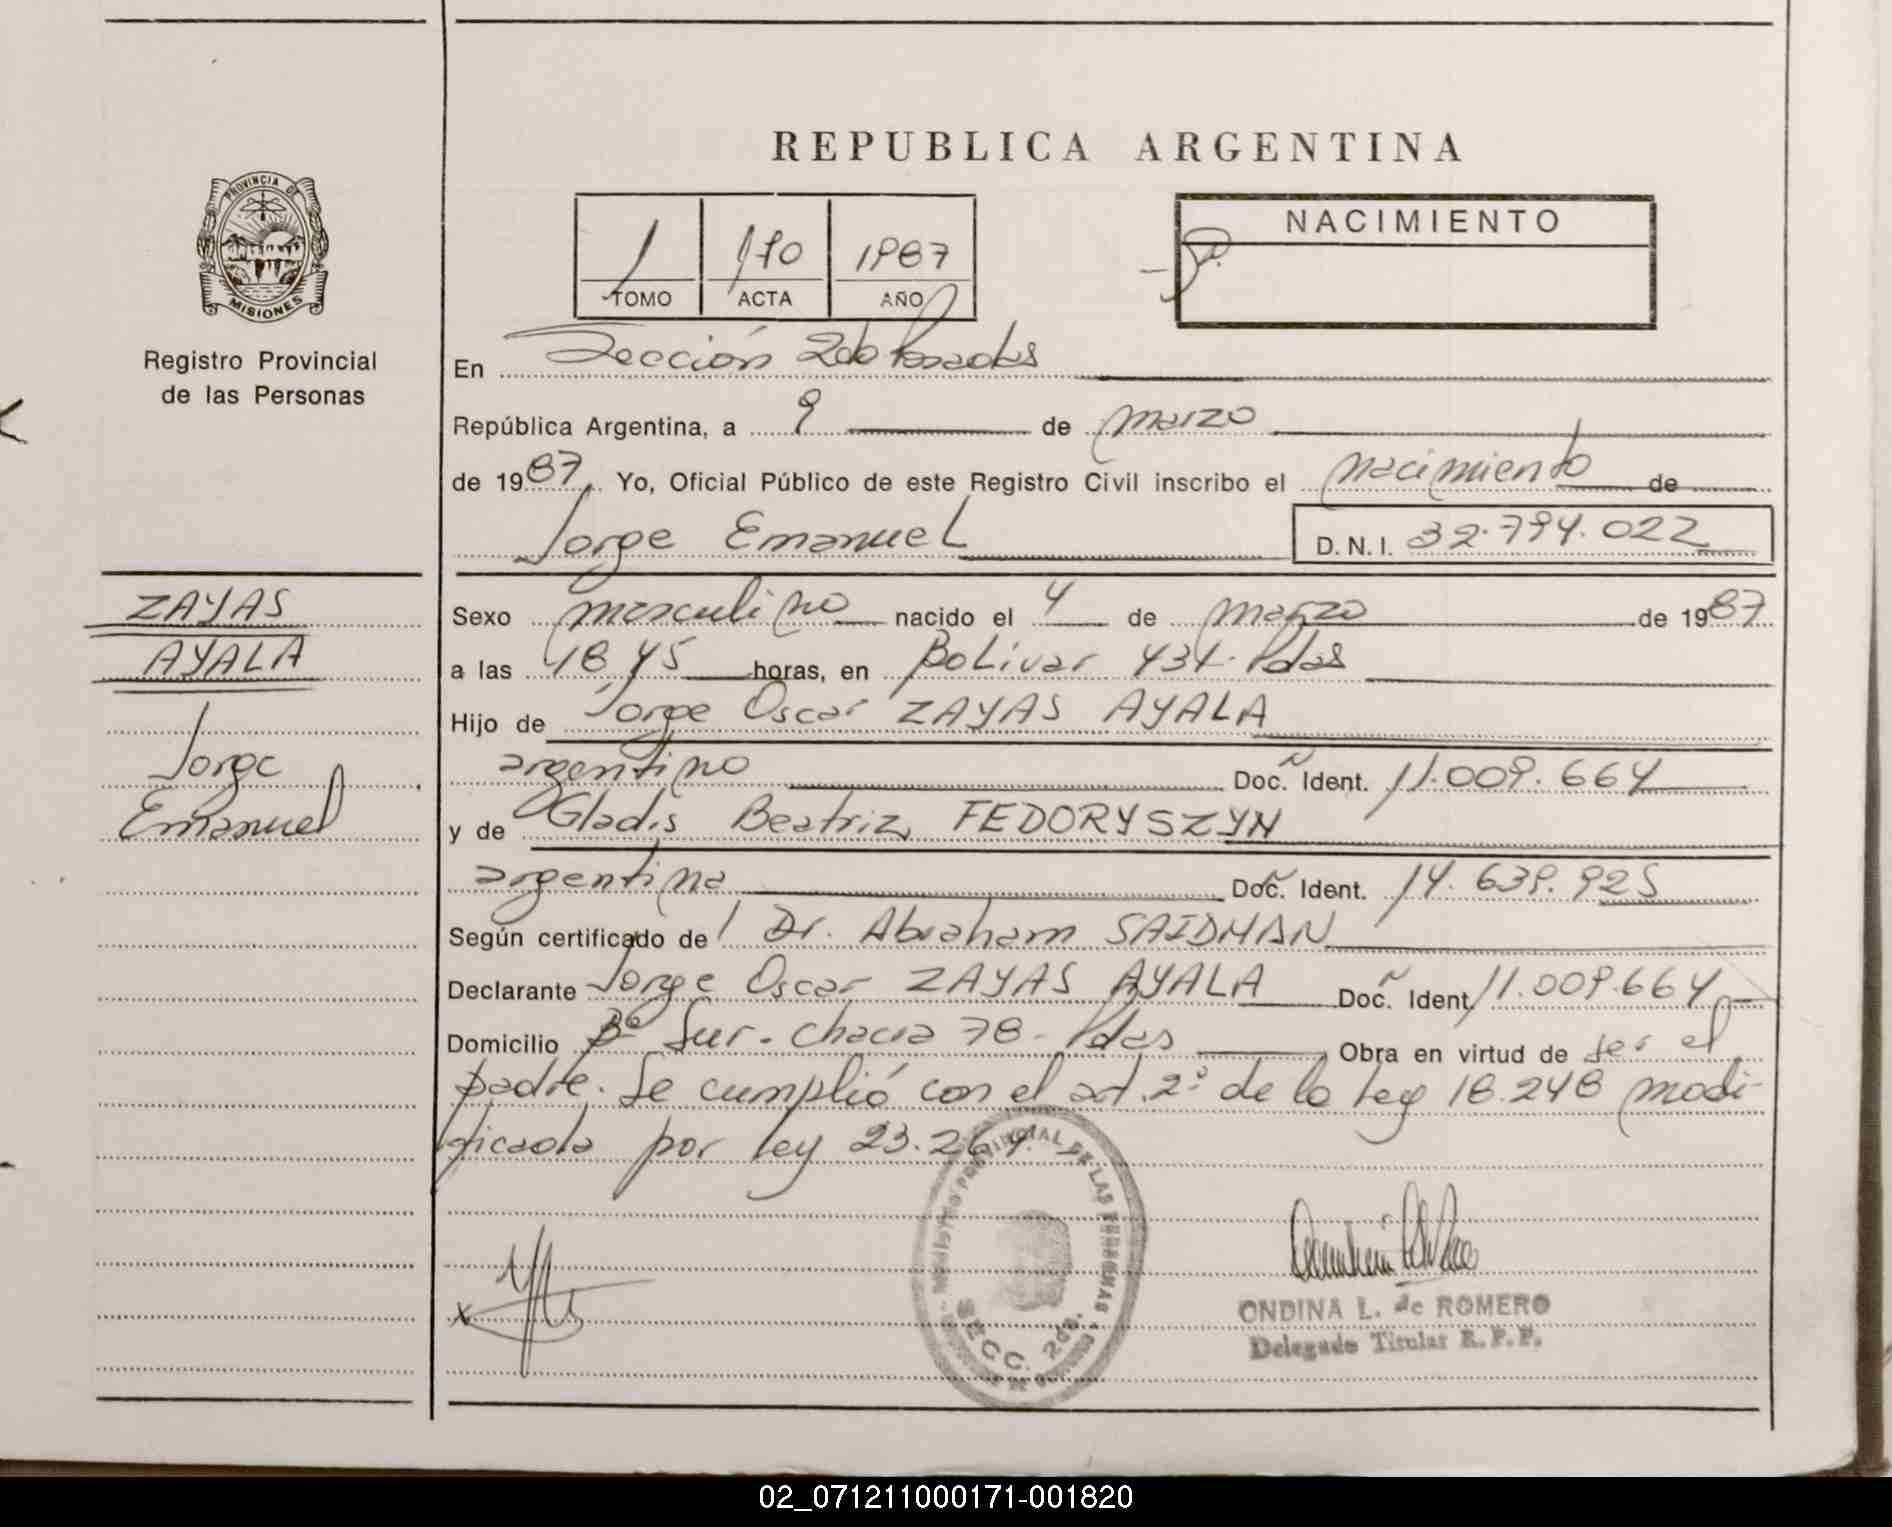 REPUBLICA ARGENTINA
PROVINCIA DE
MISIONES
Registro Provincial
de las Personas
1 170 1987
TOMO ACTA AÑO
NACIMIENTO
En Sección 2da Posadas
República Argentina, a 9 de marzo
de 1987, Yo, Oficial Público de este Registro Civil inscribo el nacimiento de
Jorge Emanuel D. N. I. 32.794.022
ZAYAS
AYALA
Jorge
Emanuel
Sexo masculino nacido el 4 de marzo de 1987
a las 18,45 horas, en Bolivar 431. Pdas
Hijo de Jorge Oscar ZAYAS AYALA
argentino Doc. Ident. 11.009.664
y de Gladis Beatriz FEDORYSZYN
argentina Doc. Ident. 14.639.925
Según certificado del Dr. Abraham SAIDMAN
Declarante Jorge Oscar ZAYAS AYALA Doc. Ident 11.009.664
Domicilio Bº Sur. Chacra 78 - Pdas Obra en virtud de ser el
padre. Se cumplió con el art. 2º de la ley 18.248 modi-
ficada por ley 23.264.
REGISTRO PROVINCIAL DE LAS PERSONAS
SECC. 2da.
ONDINA L. de ROMERO
Delegado Titular R. P. P.
02_071211000171-001820